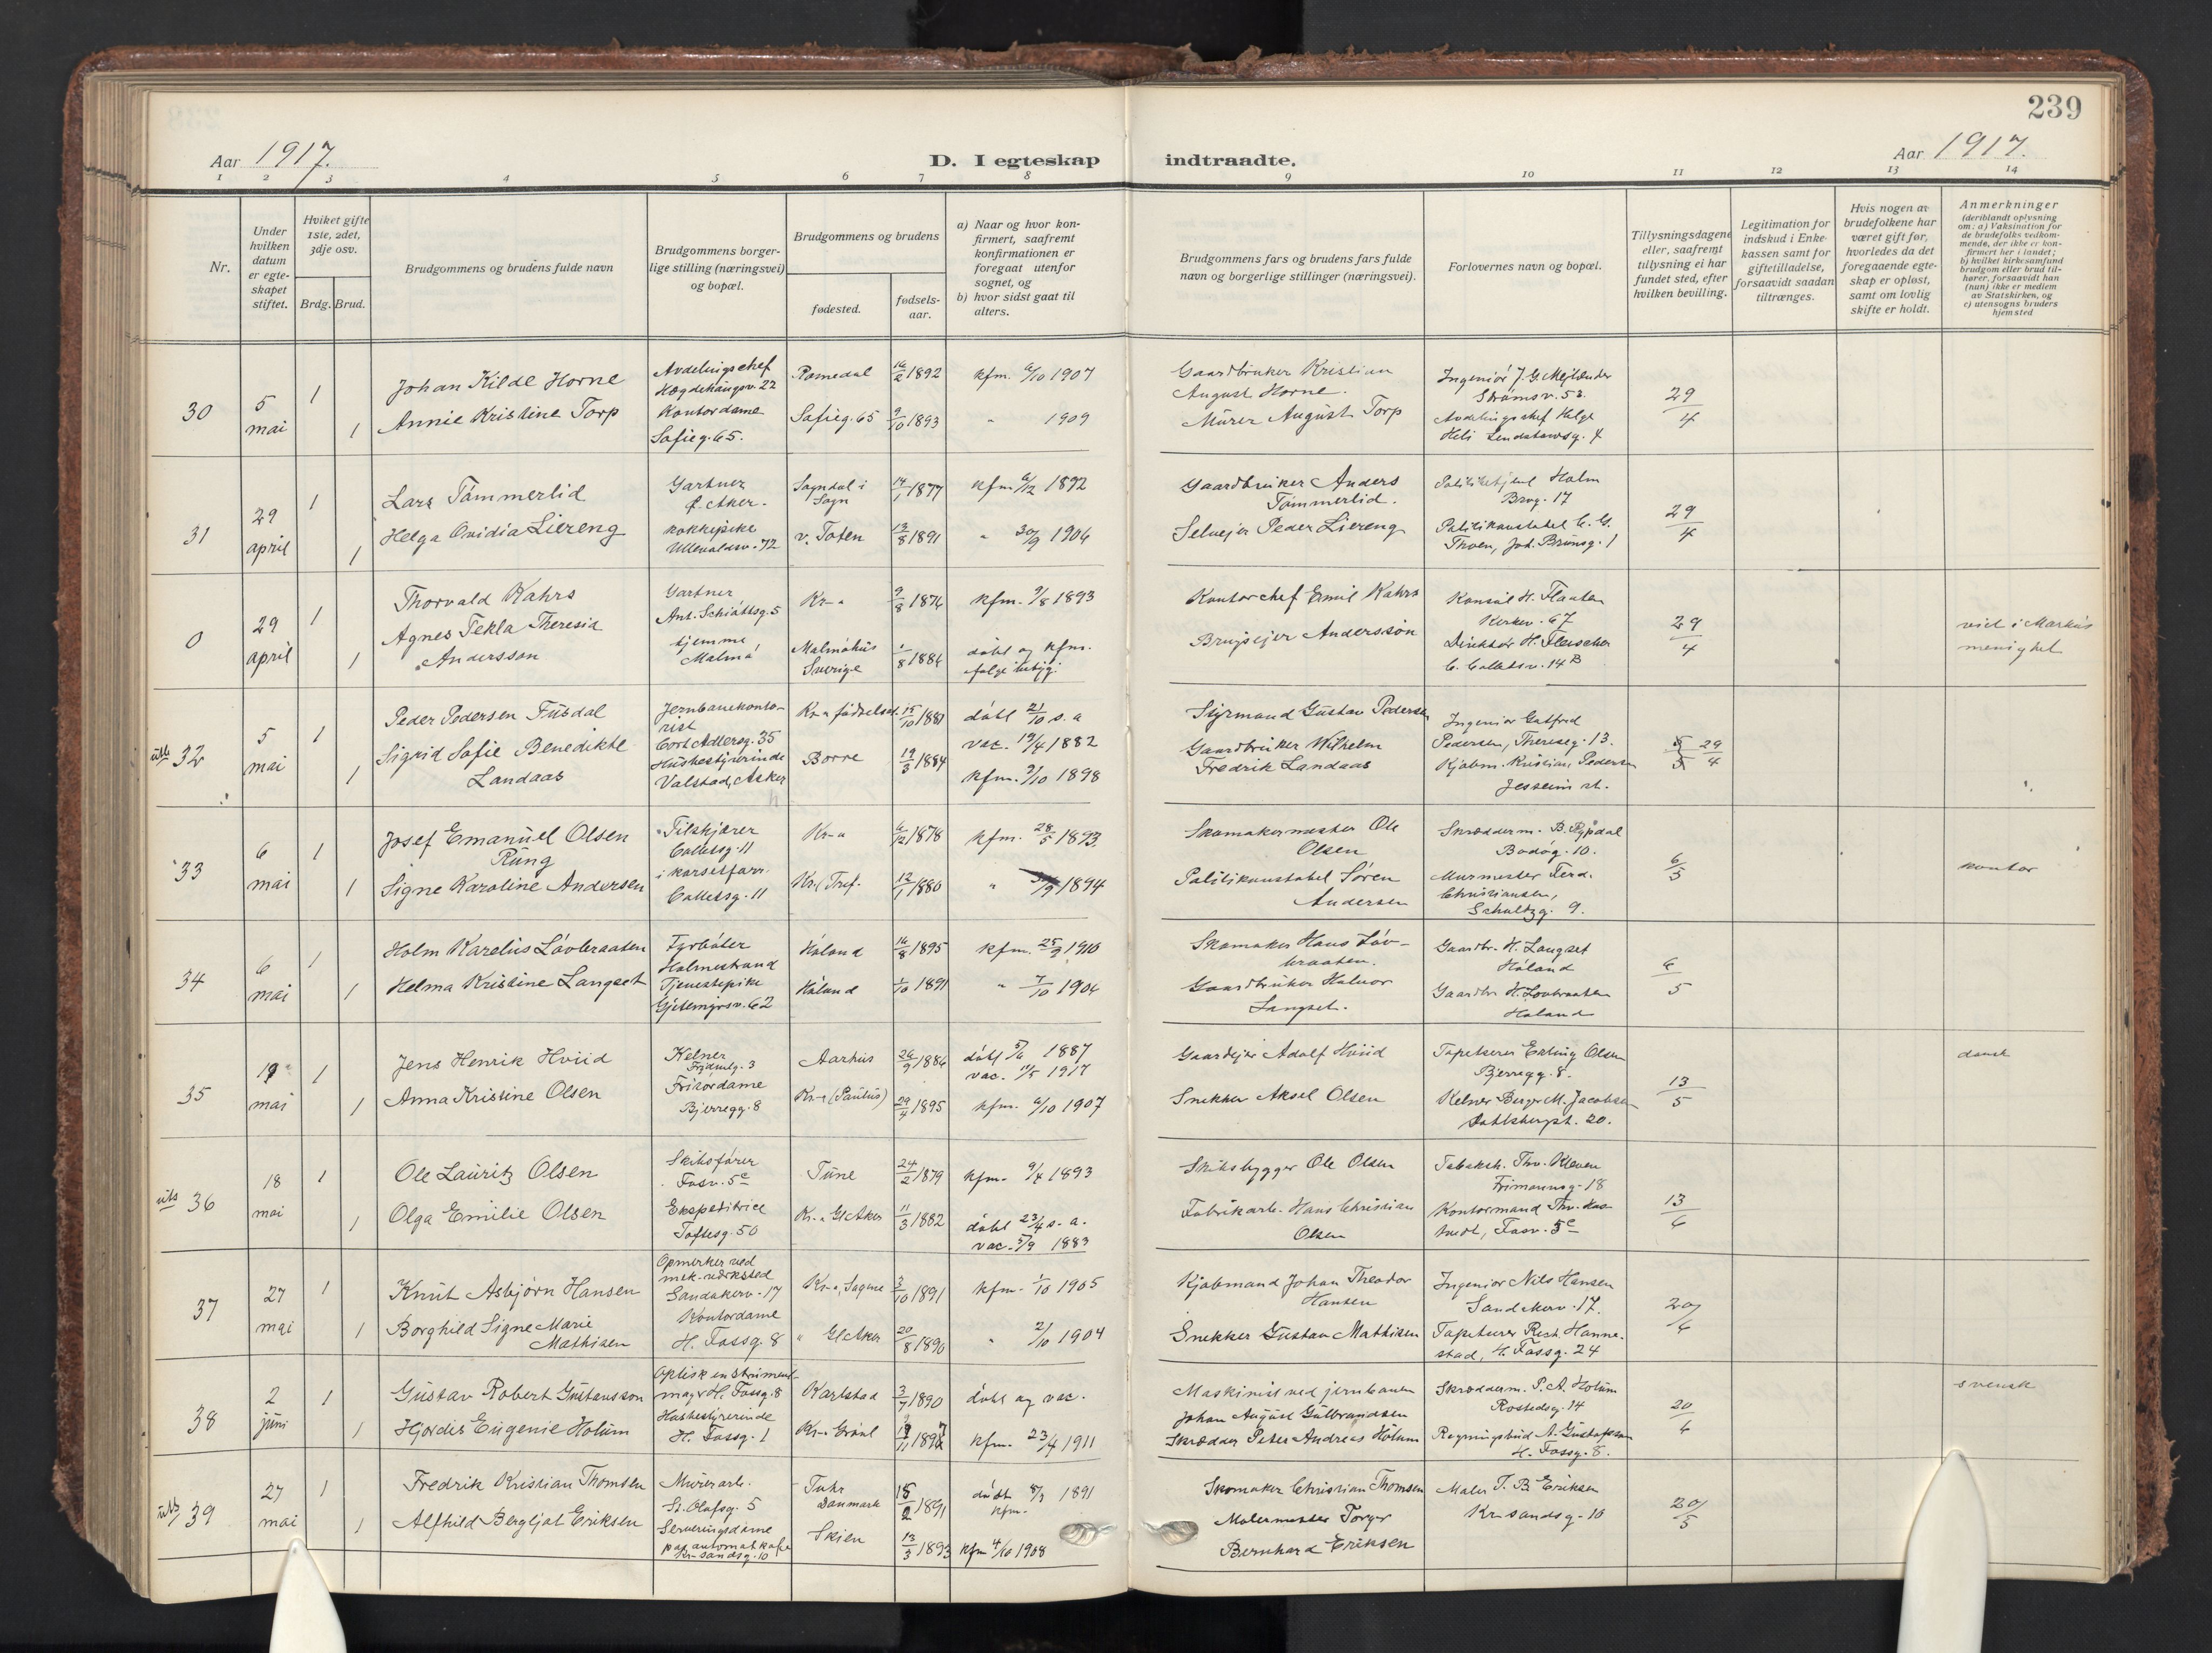 239
Aar 1917.
D. I egteskap indtraadte.
Aar 1917.
1 2 3 4 5 6 7 8 9 10 11 12 13 14
Nr.
Under hvilken datum er egteskapet stiftet.
Hviket gifte 1ste, 2det, 3dje osv.
Brdg. Brud.
Brudgommens og brudens fulde navn
Brudgommens borgerlige stilling (næringsvei) og bopæl.
Brudgommens og brudens
fødested.
fødselsaar.
a) Naar og hvor konfirmert, saafremt konfirmationen er foregaat utenfor sognet, og
b) hvor sidst gaat til alters.
Brudgommens fars og brudens fars fulde navn og borgerlige stillinger (næringsvei).
Forlovernes navn og bopæl.
Tillysningsdagene eller, saafremt tillysning ei har fundet sted, efter hvilken bevilling.
Legitimation for indskud i Enkekassen samt for giftetilladelse, forsaavidt saadan tiltrænges.
Hvis nogen av brudefolkene har været gift før, hvorledes da det foregaaende egteskap er opløst, samt om lovlig skifte er holdt.
Anmerkninger
(deriblandt oplysning om: a) Vaksination for de brudefolks vedkommende, der ikke er konfirmert her i landet;
b) hvilket kirkesamfund brudgom eller brud tilhører, forsaavidt han (hun) ikke er medlem av Statskirken, og
c) utensogns bruders hjemsted
30 5 mai 1 1
Johan Kilde Horne
Annie Kristine Torp
Avdelingschef
Hægdehaugsv. 22
Kontordame
Sofieg. 65.
Romedal 16/2 1892 kfm. 6/10 1907
Sofieg. 65 9/10 1893 " 1909
Gaardbruker Kristian
August Horne.
Murer August Torp
Ingeniør J. G. Mejlænder
Strømsv. 53.
Avdelingschef Helge
29/4
31 29 april 1 1
Lars Tømmerlid
Helga Ovidia Liereng
Gartner
Aker.
kokkepike
Ullevaldsv. 72
Sogndal i
Sogn 14/1 1877 kfm 6/12 1892
v. Toten 13/8 1891 " 30/9 1906
Gaardbruker Anders
Tømmerlid.
Selveier Peder Liereng
Holm
Brug. 17
Politikonstabel C. G.
Thoen, Joh. Brunsg. 1
29/4
0 29 april 1 1
Thorvald Kahrs
Agnes Tekla Theresia
Andersson
Gartner
Ant. Schiøttsg. 5
hjemme
Malmö
Kr-a 9/8 1876 kfm. 9/8 1893
Malmöhus
Sverige /8 1886 døbt og kfm.
følge
Kontorchef Emil Kahrs
Brugseier Andersson
Konsul H. Flaaten
Kirkev. 67
Direktør H. Fleischer
C. Collettsv. 14 B
29/4
viet i Markus
menighet
utb 32 5 mai 1 1
Peder Pedersen Fusdal
Sigrid Sofie Benedikte
Landaas
Jernbanekonto-
rist
Cort Adlersg. 35
Husbestyrerinde
Valstad, Asker
Kr-a fødselsst. 15/10 1880 døbt 21/10 s. a
vac. 19/4 1882
Borre 19/3 1884 kfm. 9/10 1898
Styrmand Gustav Pedersen
Gaardbruker Wilhelm
Fredrik Landaas
Ingeniør Gotfred
Pedersen, Theresesg. 13.
Kjøbm. Kristian Pedersen
Jessheim st.
29/4
33 6 mai 1 1
Josef Emanuel Olsen
Rung
Signe Karoline Andersen
Tilskjærer
Colletsg. 11
i korsetforr.
Colletsg. 11
Kr-a 6/12 1878 kfm. 28/5 1893.
Kr. (Tref. 12/1 1880 " 1894
Skomakermester Ole
Olsen
Politikonstabel Søren
Andersen
Skrædderm. B. Rypdal
Bodøg. 10.
Murmester Ferd.
Christiansen,
Schultzg. 9.
6/5
kontor
34 6 mai 1 1
Holm Karelius Løvbraaten
Helma Kristine Langset
Fyrbøter
Holmestrand
Tjenestepike
Gjetemyrsv. 62
Høland 16/8 1895 kfm. 25/9 1910
Høland 1/10 1891 " 7/10 1906
Skomaker Hans Løv-
braaten.
Gaardbruker Halvor
Langset.
Gaardbr. H. Langset
Høland
Gaardbr. H. Løvbraaten
Høland
6/5
35 19 mai 1 1
Jens Henrik Hviid
Anna Kristine Olsen
Kelner
3
Frisørdame
Bjerregg. 8
Aarhus 26/9 1886 døbt 5/6 1887
vac. 11/5 1917
Kr-a (Paulus) 29/4 1895 kfm. 6/10 1907
Gaardejer Adolf Hviid
Snekker Aksel Olsen
Tapetserer Erling Olsen
Bjerregg. 8.
Kelner Berger M. Jacobsen
20.
13/5
dansk
utb 36 18 mai 1 1
Ole Lauritz Olsen
Olga Emilie Olsen
Skibsfører
Fosv. 5c
Ekspeditrice
Toftesg. 50
Tune 24/2 1879 kfm. 9/4 1893
Kr-a Gl Aker 11/3 1882 døbt 23/4 s. a.
vac. 5/9 1883
Skibsbygger Ole Olsen
Fabrikarb. Hans Christian
Olsen
Tobaksh. Thv. Kleven
Frimannsg. 18
Kontormand Thv.
Fosv. 5c
13/6
37 27 mai 1 1
Knut Asbjørn Hansen
Borghild Signe Marie
Mathisen
Opmerker ved
mek. verksted
Sandakerv. 17
Kontordame
H. Fossg. 8
Kr-a, Sagene 3/10 1891 kfm. 1/10 1905
" Gl Aker 20/8 1890 " 2/10 1904
Kjøbmand Johan Theodor
Hansen
Snekker Gustav Mathisen
Ingeniør Nils Hansen
Sandakerv. 17.
Tapetserer Rich. Hanne-
stad, H. Fossg. 24
20/6
38 2 juni 1 1
Gustav Robert Gustavsson
Hjørdis Eugenie Holum
Optisk instrument-
mager H. Fossg. 8
Husbestyrerinde
H. Fossg. 1
Karlstad 3/7 1890 døbt og vac.
Kr-a Grønl kfm. 23/4 1911
Maskinist ved jernbanen
Johan August Gulbrandsen
Skrædder Peter Andreas Holum
Skrædderm. P. A. Holum
Rostedsg. 14
Regningsbud A. Gustafsson
H. Fossg. 8.
20/6
svensk
utb 39 27 mai 1 1
Fredrik Kristian Thomsen
Alfhild Bergljot Eriksen
Murerarb.
St. Olafsg. 5
Serveringsdame
paa automatkafe
Kr-sandsg. 10
Danmark 15/2 1891 døbt 8/3 1891
kfm.
Skien 13/3 1893 kfm 4/10 1908
Skomaker Christian Thomsen
Malermester Torger
Bernhard Eriksen
Maler T. B. Eriksen
Kr-sandsg. 10
20/5